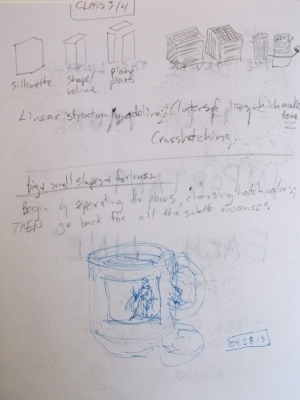 CLASS 3/4
silhouette
shape/
volume
planes/
parts
Linear structure/modeling; Clusters of lines which make
tone
Crosshatching.
big & small shapes & for
Begin by separating the planes, choosing hatch values;
THEN go back for all the subtle nuances
04.28.13